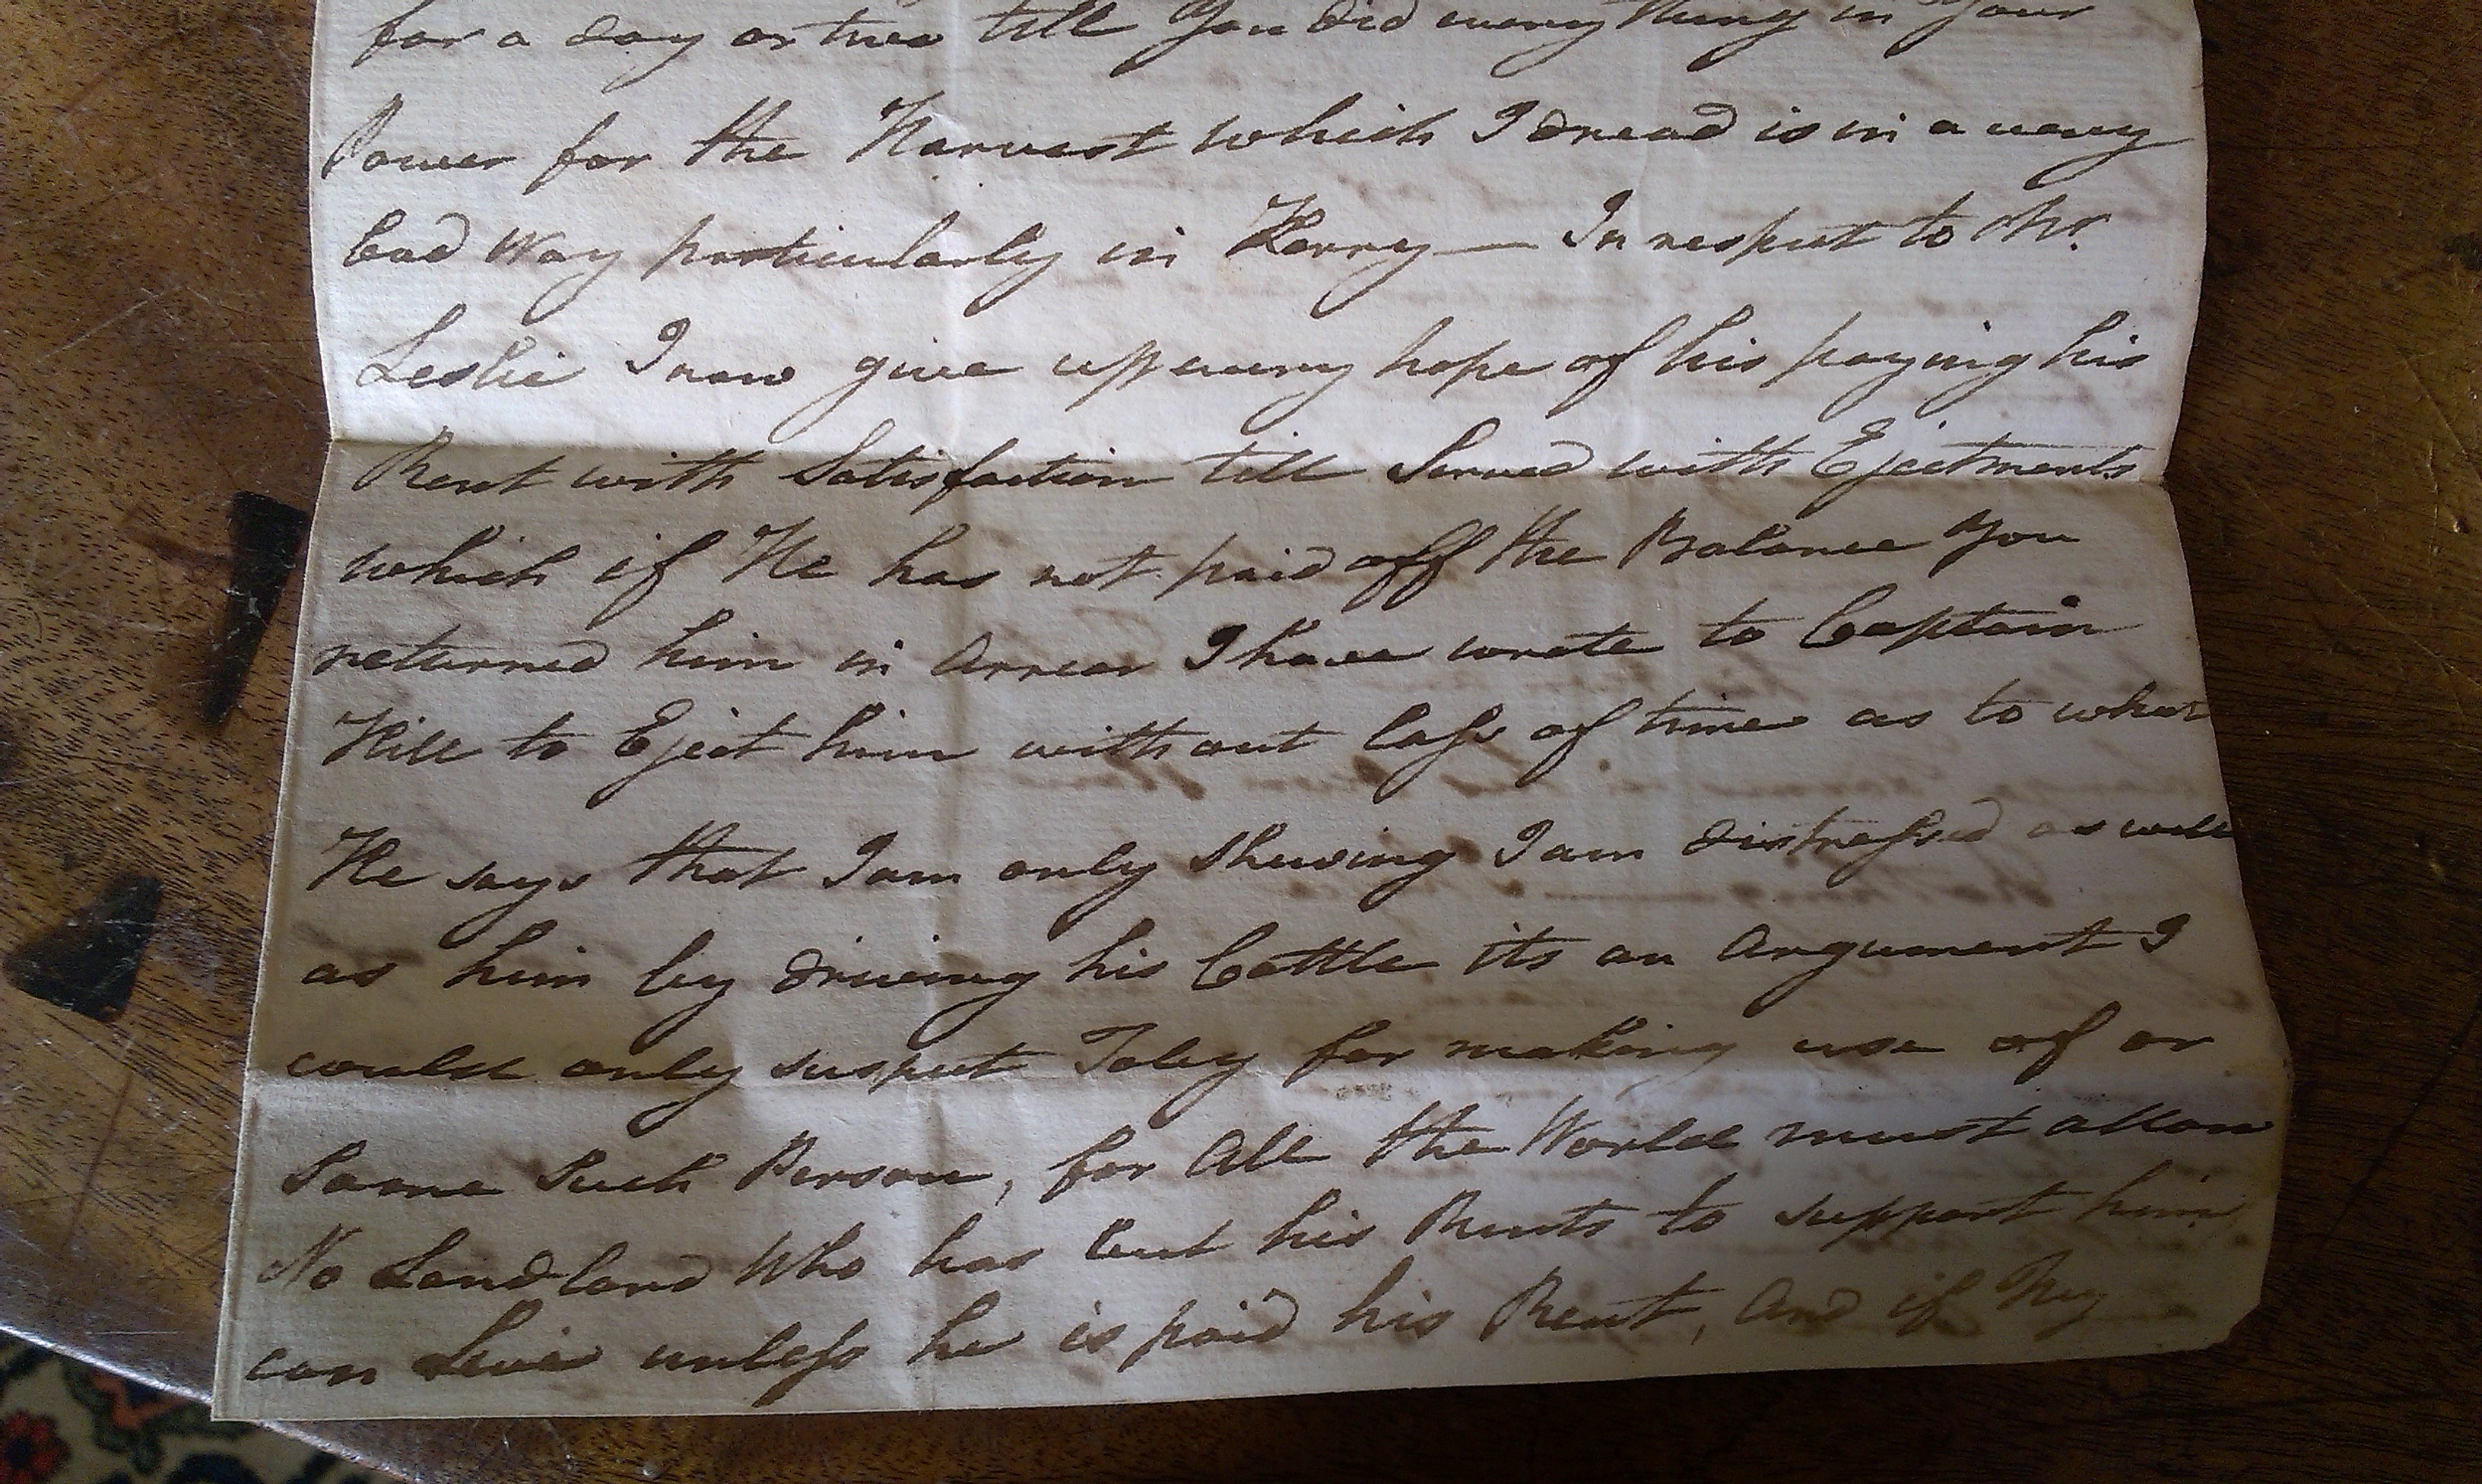 for a day or two till You did every thing in Your
Power for the Harvest which I dread is in a very
bad Way particularly in Kerry — In respect to Mr.
Leslie I now give up every hope of his paying his
Rent with Satisfaction till Served with Ejectments
which if He has not paid off the Balance You
returned him in Arrear I have wrote to Captain
Hill to Eject him without loss of time as to what
He says that I am only shewing I am distressed as well
as him by driving his Cattle its an Argument I
could only suspect Toby for making use of or
Some Such Person, for All the World must allow
No Landlord Who has but his Rents to support him
can Live unless he is paid his Rent, And if